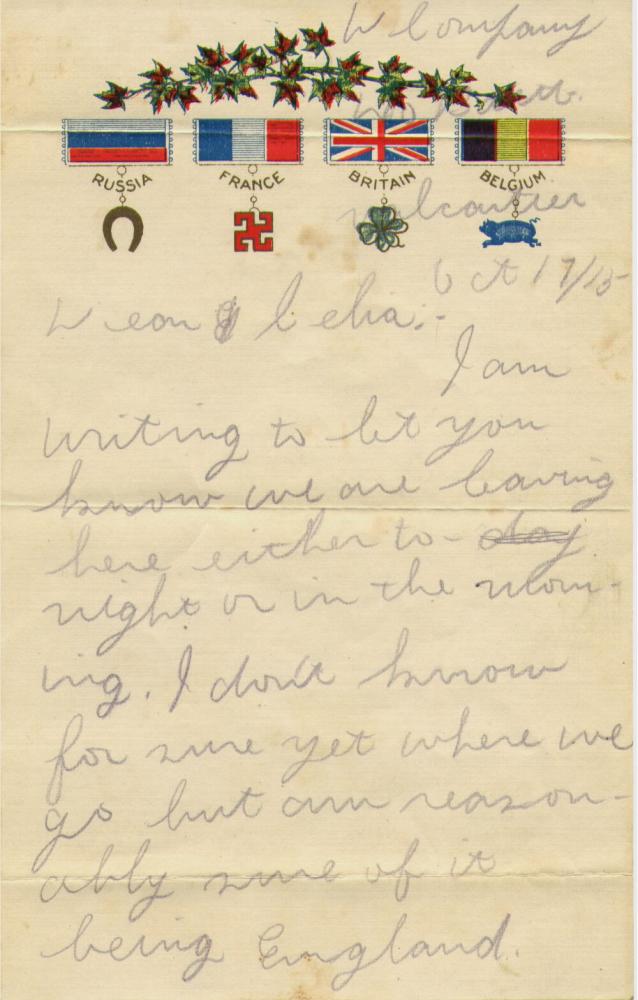 Company
RUSSIA FRANCE BRITAIN BELGIUM
Valcartier
Oct 17/15
Dear Celia:-
I am
writing to let you
know we are leaving
here either to- day
night or in the morn-
ing. I don't know
for sure yet where we
go but am reason-
ably sure of it
being England.